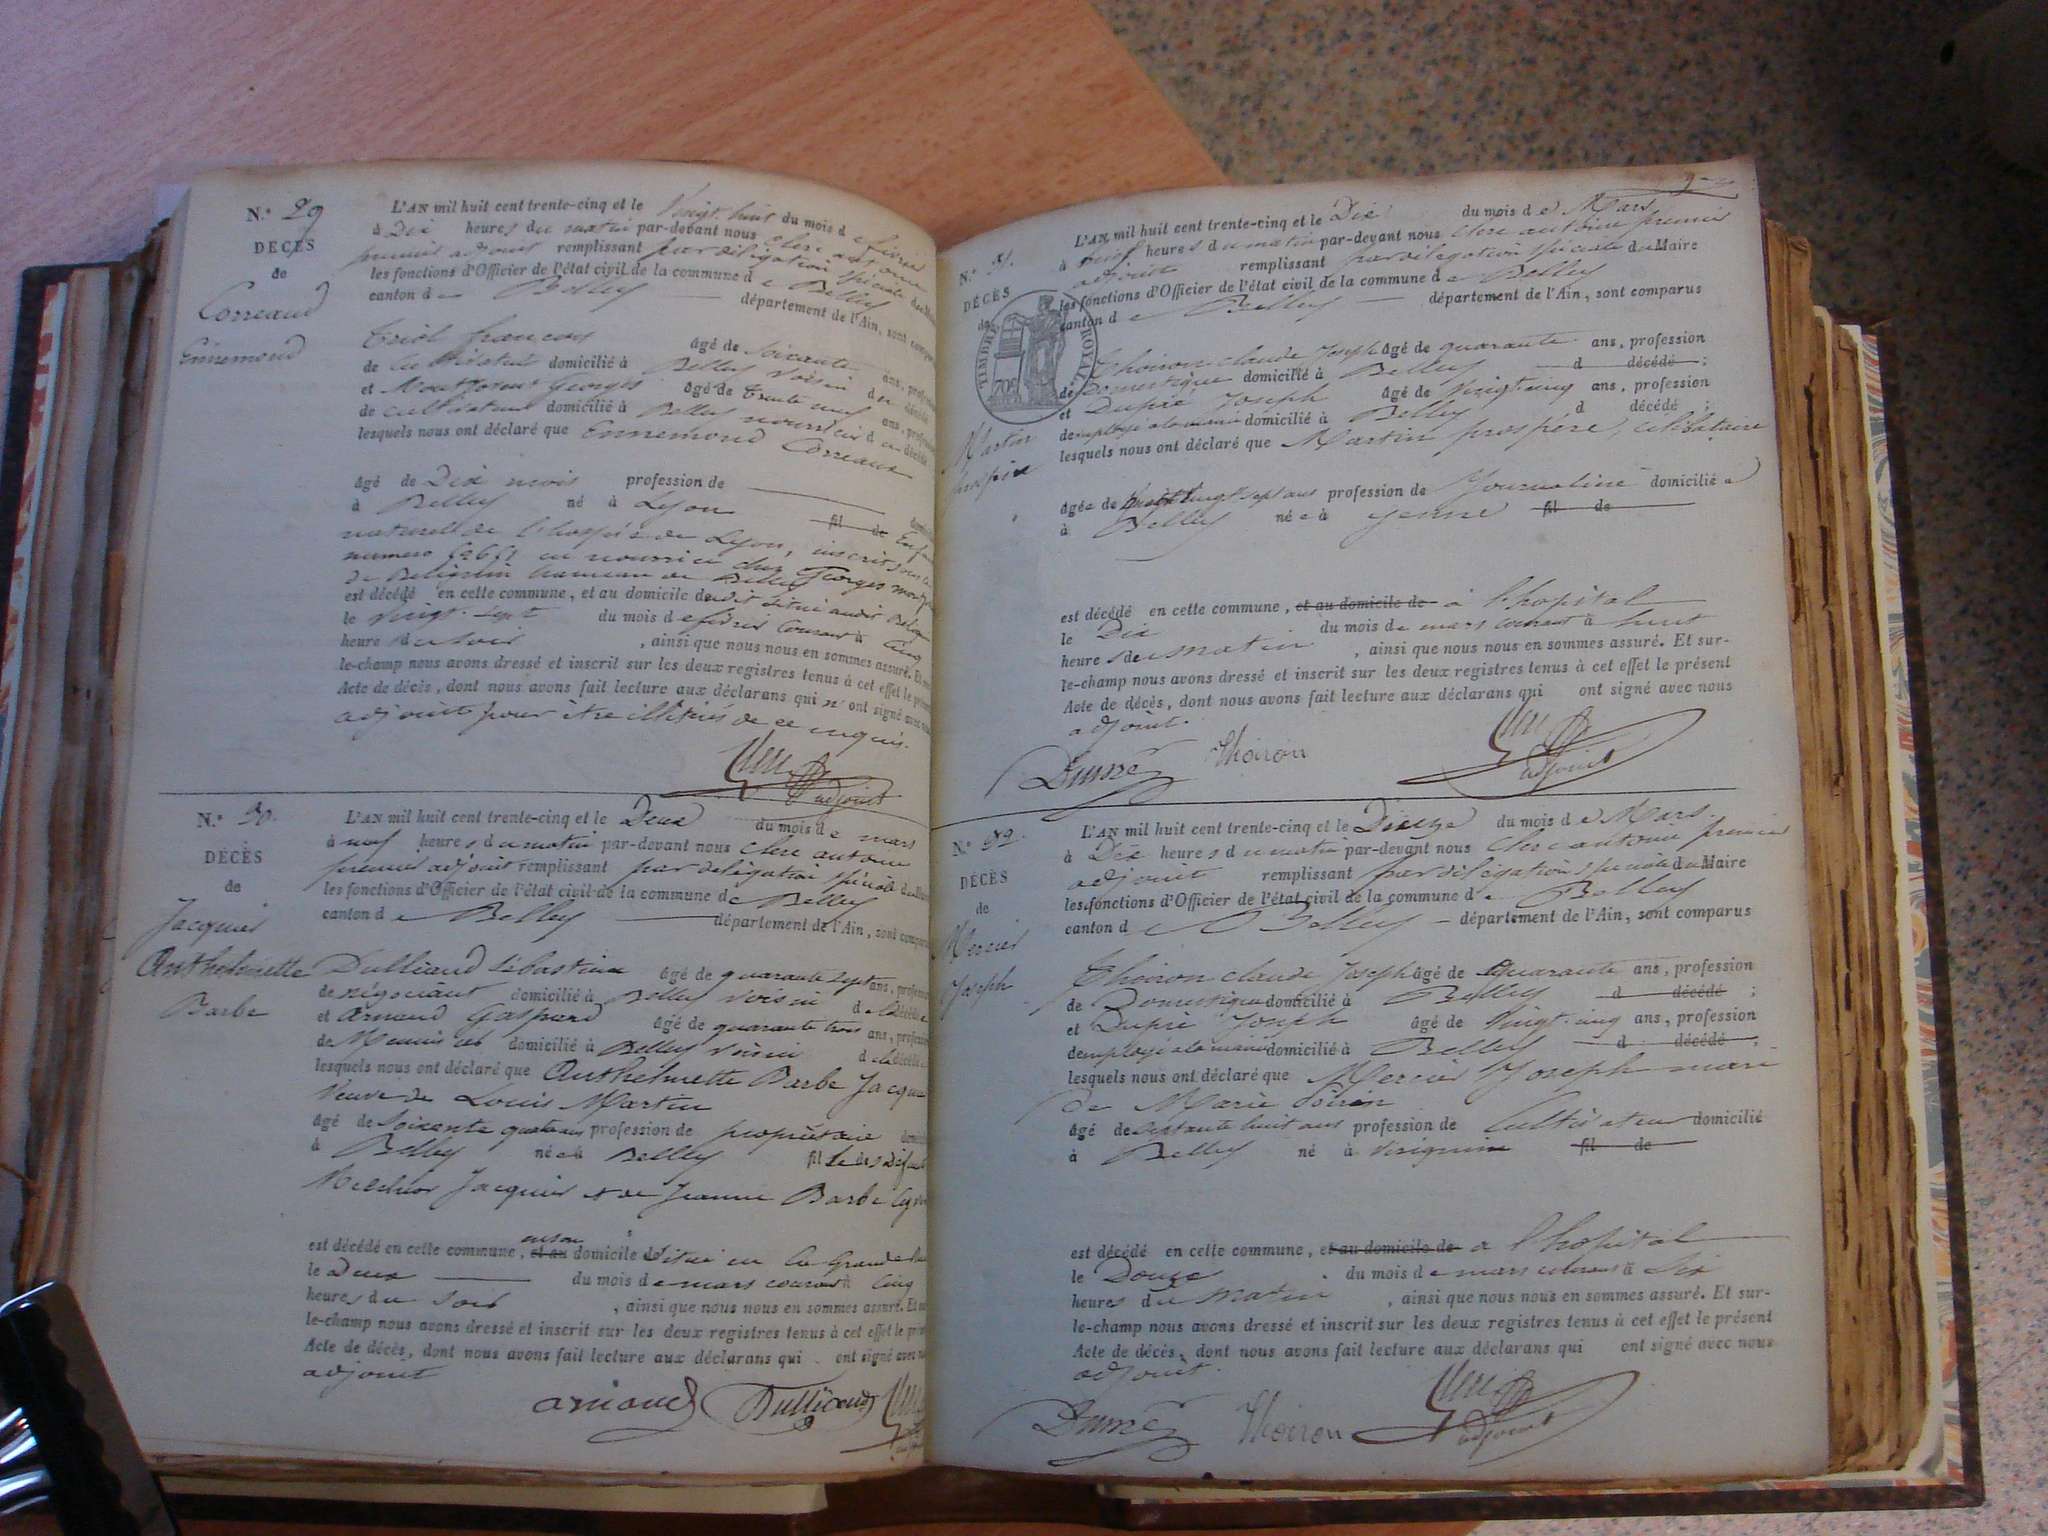 N.º 29
DÉCÈS
de
Correaud
Ennemond
L'AN mil huit cent trente-cinq et le Vingt huit du mois de février
à Dix heures du matin par-devant nous Clerc antoine
premier adjoint remplissant par délégation spéciale du Maire
les fonctions d'Officier de l'état civil de la commune de Belley
canton de Belley département de l'Ain, sont comparus
françois âgé de Soixante ans, profession
de Cultivateur domicilié à Belley Voisin du décédé
et Georges âgé de trente neuf ans, profession
de cultivateur domicilié à Belley nourricier du décédé
lesquels nous ont déclaré que Ennemond Correaux
âgé de Dix mois profession de
à Belley né à Lyon fil de Enfant
naturel de l'hospice de Lyon, inscrit sous le
numero en nourrice chez Georges
de Belignin hameau de Belley
est décédé en cette commune, et au domicile dudit situé audit
le Vingt-sept du mois de février Courant à Cinq
heures du soir, ainsi que nous nous en sommes assuré. Et sur-
le-champ nous avons dressé et inscrit sur les deux registres tenus à cet effet le présent
Acte de décès, dont nous avons fait lecture aux déclarans qui n'ont signé avec nous
adjoint pour être illitérés de ce enquis.
adjoint
N.º 30.
DÉCÈS
de
Jacquier
Anthelmette
Barbe
L'AN mil huit cent trente-cinq et le Deux du mois de mars
à neuf heures du matin par-devant nous Clerc antoine
premier adjoint remplissant par délégation spéciale du Maire
les fonctions d'Officier de l'état civil de la commune de Belley
canton de Belley département de l'Ain, sont comparus
Dulliaud Sébastien âgé de quarante sept ans, profession
de négociant domicilié à Belley Voisin de la décédée
et Arnaud Gaspard âgé de quarante trois ans, profession
de domicilié à Belley Voisin de la décédée
lesquels nous ont déclaré que Anthelmette Barbe Jacquier
Veuve de Louis Martin
âgé de Soixante quatre ans profession de propriétaire domicilié
à Belley née à Belley fille des Défunts
Melchior Jacquier & de Jeanne Barbe
est décédé en cette commune, et au en son domicile situé en la Grande Rue
le Deux du mois de mars courant à Cinq
heures du Soir, ainsi que nous nous en sommes assuré. Et sur-
le-champ nous avons dressé et inscrit sur les deux registres tenus à cet effet le présent
Acte de décès, dont nous avons fait lecture aux déclarans qui ont signé avec nous
adjoint
arnaud Dulliaud
N.º 31.
DÉCÈS
de
TIMBRE ROYAL
70c
Martin
prospère
L'AN mil huit cent trente-cinq et le Dix du mois de Mars
à neuf heures du matin par-devant nous Clerc antoine premier
adjoint remplissant par délégation spéciale du Maire
les fonctions d'Officier de l'état civil de la commune de Belley
canton de Belley département de l'Ain, sont comparus
Thoiron claude Joseph âgé de quarante ans, profession
de Domestique domicilié à Belley d décédé ;
et Dupré Joseph âgé de Vingt cinq ans, profession
d'employé à la mairie domicilié à Belley d décédé ;
lesquels nous ont déclaré que Martin prospère, célibataire
âgée de vingt sept ans profession de Journalière domicilié e
à Belley née à yenne fil de
est décédé en cette commune, et au domicile de à l'hopital
le Dix du mois de mars courant à huit
heures du matin, ainsi que nous nous en sommes assuré. Et sur-
le-champ nous avons dressé et inscrit sur les deux registres tenus à cet effet le présent
Acte de décès, dont nous avons fait lecture aux déclarans qui ont signé avec nous
adjoint.
Dupré Thoiron adjoint
N.º 32.
DÉCÈS
de
Mercier
Joseph
L'AN mil huit cent trente-cinq et le Douze du mois de Mars.
à Dix heures du matin par-devant nous Clerc antoine premier
adjoint remplissant par délégation spéciale du Maire
les fonctions d'Officier de l'état civil de la commune de Belley
canton de Belley département de l'Ain, sont comparus
Thoiron claude Joseph âgé de Quarante ans, profession
de Domestique domicilié à Belley d décédé ;
et Dupré Joseph âgé de Vingt-cinq ans, profession
d'employé à la mairie domicilié à Belley d décédé ;
lesquels nous ont déclaré que Mercier Joseph mari
de Marie
âgé de septante huit ans profession de Cultivateur domicilié
à Belley né à Virignin fil de
est décédé en cette commune, et au domicile de à l'hopital
le Douze du mois de mars courant à Six
heures du Matin, ainsi que nous nous en sommes assuré. Et sur-
le-champ nous avons dressé et inscrit sur les deux registres tenus à cet effet le présent
Acte de décès, dont nous avons fait lecture aux déclarans qui ont signé avec nous
adjoint.
Dupré Thoiron adjoint